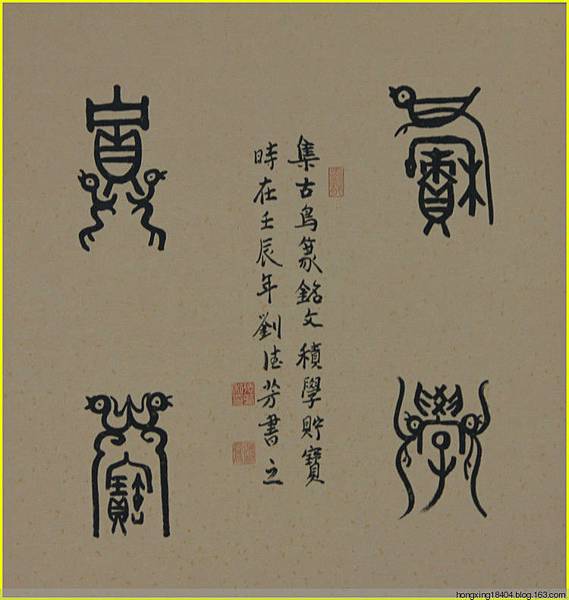 積學
集古鳥篆銘文積學貯寶
時在壬辰年劉德芳書之
貯寶
hongxing18404.blog.163.com